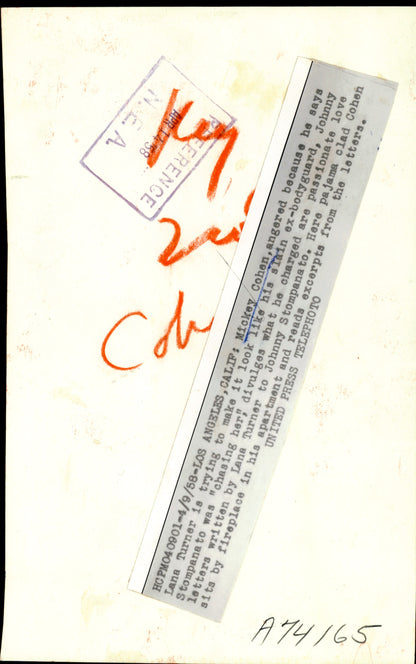 N. E. A.
APR 14 '58
REFERENCE
Key
Coh
HCPM040901-4/9/58-LOS ANGELES,CALIF: Mickey Cohen,angered because he says
Lana Turner is trying to make it look like his slain ex-bodyguard, Johnny
Stompanato was "chasing her", divulges what he charged are passionate love
letters written by Lana Turner to Johnny Stompanato. Here pajama clad Cohen
sits by fireplace in his apartment and reads excerpts from the letters.
UNITED PRESS TELEPHOTO
A74165